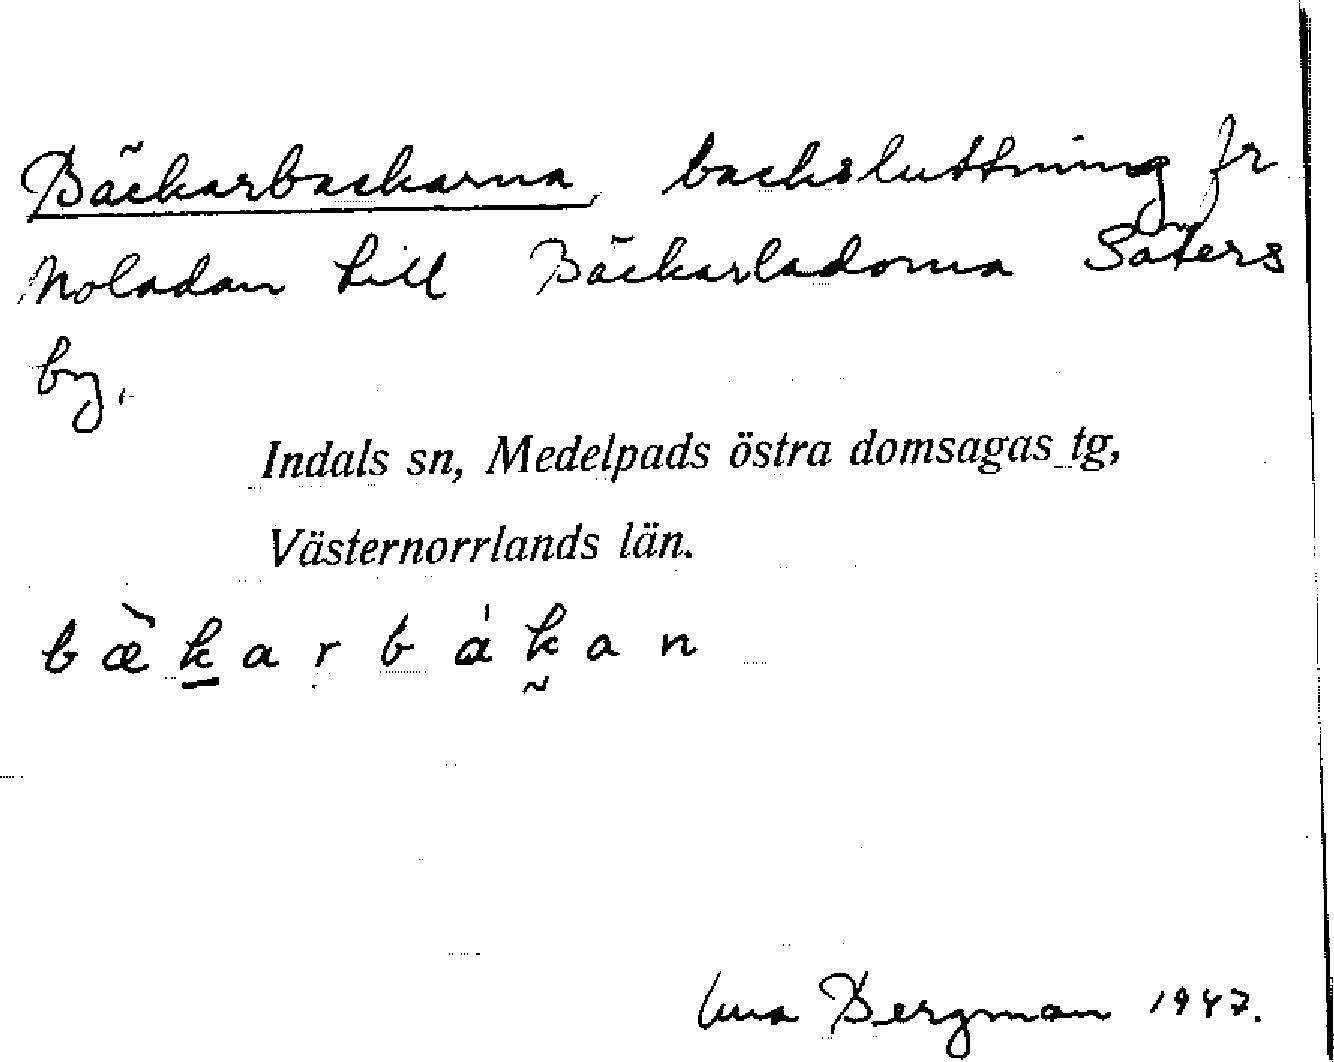 Bäckarbackarna, backsluttning fr
Noladan till Bäckarladorna Säters
by.
Indals sn, Medelpads östra domsagas tg,
Västernorrlands län.
bæ̀k̠arbák̰an
Bergman 1947.